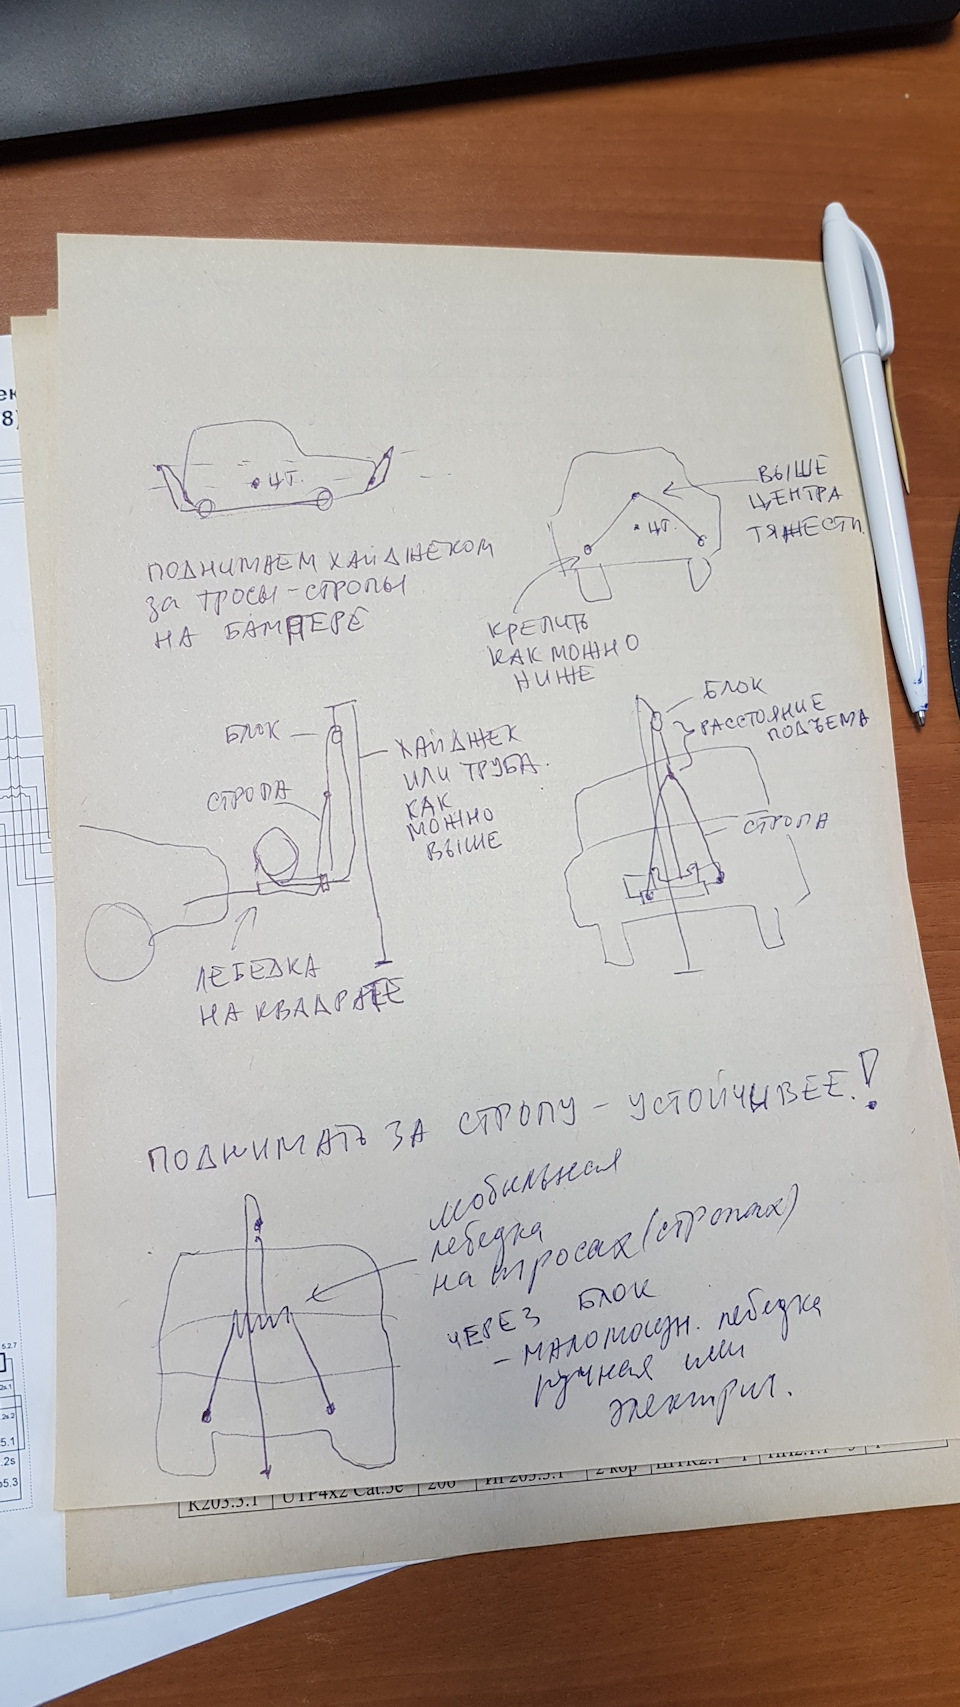 ек
8)
ц.т.
ПОДНИМАЕМ ХАЙДЖЕКОМ
за ТРОСЫ-СТРОПЫ
НА БАМПЕРЕ
ц.т.
ВЫШЕ
ЦЕНТРА
ТЯЖЕСТИ
КРЕПИТЬ
КАК МОЖНО
НИЖЕ
БЛОК
СТРОПА
ХАЙДЖЕК
ИЛИ ТРУБА.
КАК
МОЖНО
ВЫШЕ
ЛЕБЕДКА
НА КВАДРАТЕ
БЛОК
РАССТОЯНИЕ
ПОДЪЕМА
СТРОПА
ПОДНИМАТЬ ЗА СТРОПУ – УСТОЙЧИВЕЕ!
мобильная
лебедка
на тросах (стропах)
ЧЕРЕЗ БЛОК
- маломощн. лебедка
ручная или
электрич.
5.2.7
5.1
.2s
5.3
К203.3.1 UTP4x2 Cat.5e 206